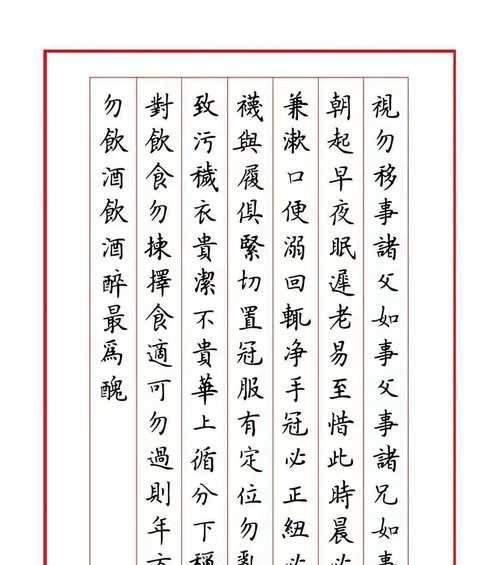 視勿移事諸父如事父事諸兄如事
朝起早夜眠遲老易至惜此時晨必
兼漱口便溺回輒净手冠必正紐必
襪與履俱緊切置冠服有定位勿亂
致污穢衣貴潔不貴華上循分下稱
對飲食勿揀擇食適可勿過則年方
勿飲酒飲酒醉最爲醜